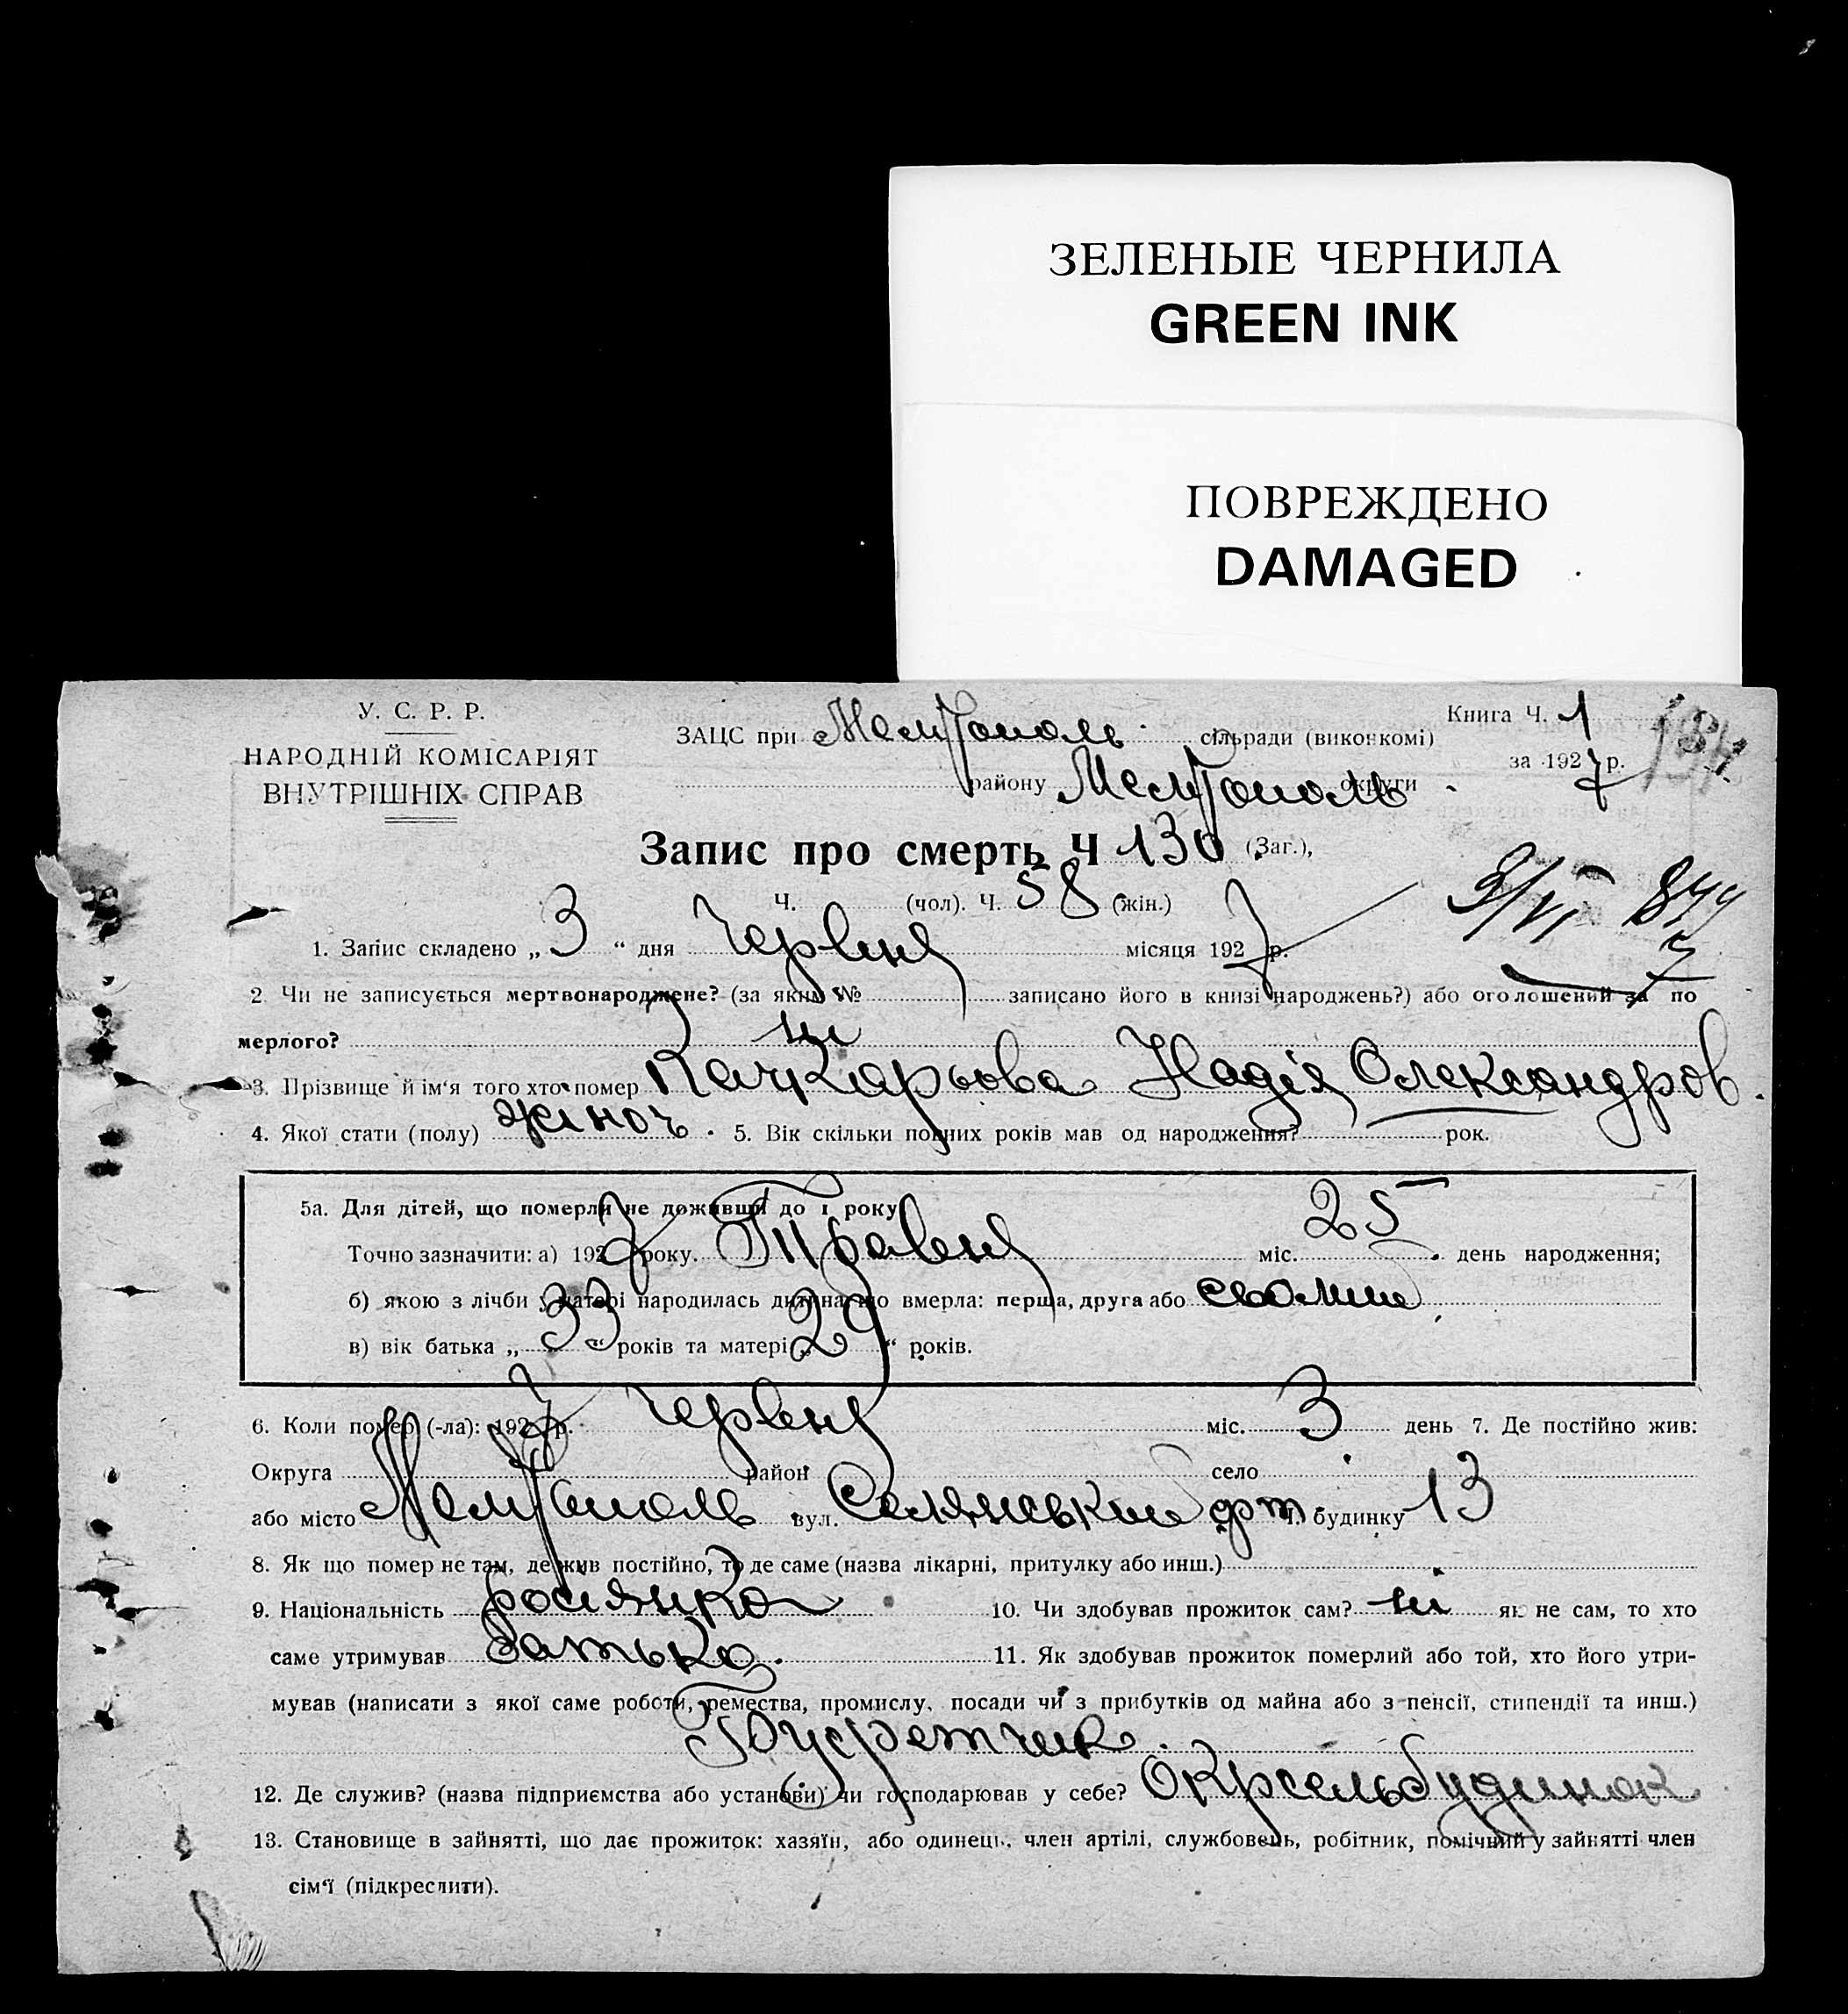 ЗЕЛЕНЫЕ ЧЕРНИЛА
GREEN INK
ПОВРЕЖДЕНО
DAMAGED
У. С. Р. Р.
НАРОДНІЙ КОМІСАРІЯТ
ВНУТРІШНІХ СПРАВ
ЗАЦС при Мелітополь сільради (виконкомі)
району Мелітополь округи
Книга Ч. 1
за 1927 р.
Запис про смерть Ч 130 (Заг.),
Ч. (чол). Ч. 58 (жін.)
3/VI
1. Запис складено „3“ дня Червня місяця 1927 р.
2. Чи не записується мертвонароджене? (за яким № записано його в книзі народжень?) або оголошений за по
мерлого? ні
3. Прізвище й ім'я того хто помер Качкарьова Надія Олександров.
4. Якої стати (полу) жіноч. 5. Вік скільки повних років мав од народження? рок.
5а. Для дітей, що померли не доживши до 1 року
Точно зазначити: а) 1927 року. Травня міс. 25 день народження;
б) якою з лічби у матері народилась дитина, що вмерла: перша, друга або
в) вік батька „33“ років та матері „29“ років.
6. Коли помер (-ла): 1927 р. Червня міс. 3 день 7. Де постійно жив:
Округа район село
або місто Мелітополь вул. Селянський Ч. будинку 13
8. Як що помер не там, де жив постійно, то де саме (назва лікарні, притулку або инш.)
9. Національність росіянка 10. Чи здобував прожиток сам? ні як не сам, то хто
саме утримував батько. 11. Як здобував прожиток померлий або той, хто його утри-
мував (написати з якої саме роботи, ремества, промислу, посади чи з прибутків од майна або з пенсії, стипендії та инш.)
Буфетчик.
12. Де служив? (назва підприємства або установи) чи господарював у себе? Окрсельбудинок
13. Становище в зайнятті, що дає прожиток: хазяїн, або одинець, член артілі, службовець, робітник, помічний у зайнятті член
сім'ї (підкреслити).